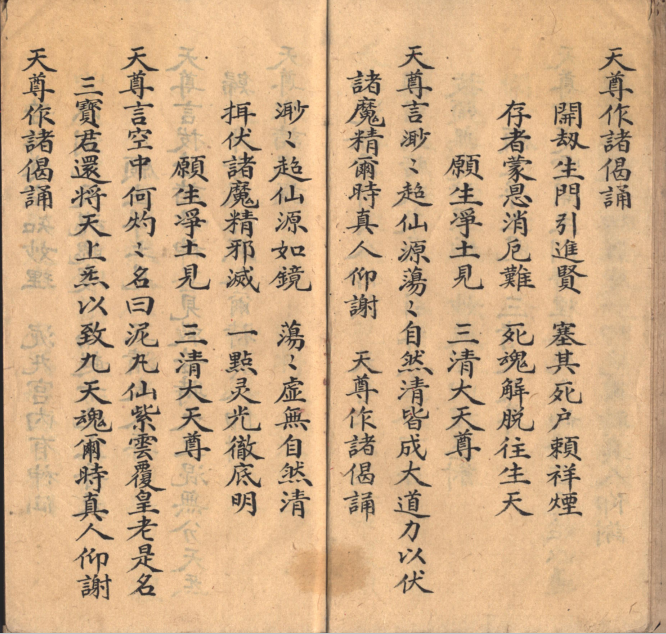 天尊作諸偈誦
開劫生門引進賢　塞其死户頼祥煙
存者蒙恩消厄難　死魂解脱往生天
願生凈土見　三清大天尊
天尊言渺〻超仙源蕩〻自然清皆成大道力以伏
諸魔精爾時真人仰謝　天尊作諸偈誦
渺〻超仙源如鏡　蕩〻虛無自然清
揖伏諸魔精邪滅　一㸃灵光徹底明
願生凈土見　三清大天尊
天尊言空中何灼〻名曰泥丸仙紫雲覆皇老是名
三寶君還將天上炁以致九天魂爾時真人仰謝
天尊作諸偈誦